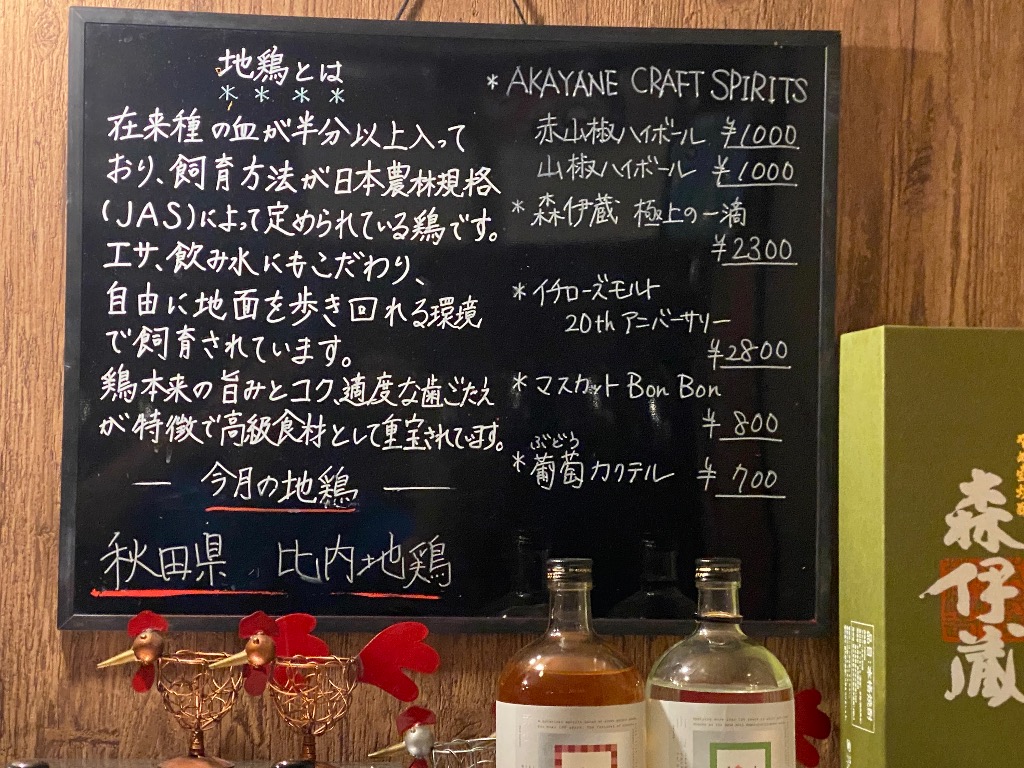 地鶏とは
＊＊＊＊
在来種の血が半分以上入って
おり、飼育方法が日本農林規格
(JAS)によって定められている鶏です。
エサ、飲み水にもこだわり、
自由に地面を歩き回れる環境
で飼育されています。
鶏本来の旨みとコク、適度な歯ごたえ
が特徴で高級食材として重宝されています。
― 今月の地鶏 ―
秋田県 比内地鶏
＊AKAYANE CRAFT SPIRITS
赤山椒ハイボール ¥1000
山椒ハイボール ¥1000
＊森伊蔵 極上の一滴
¥2300
＊イチローズモルト
20th アニバーサリー
¥2800
＊マスカット Bon Bon
¥800
ぶどう
＊葡萄カクテル ¥700
森伊蔵
品目:本格焼酎